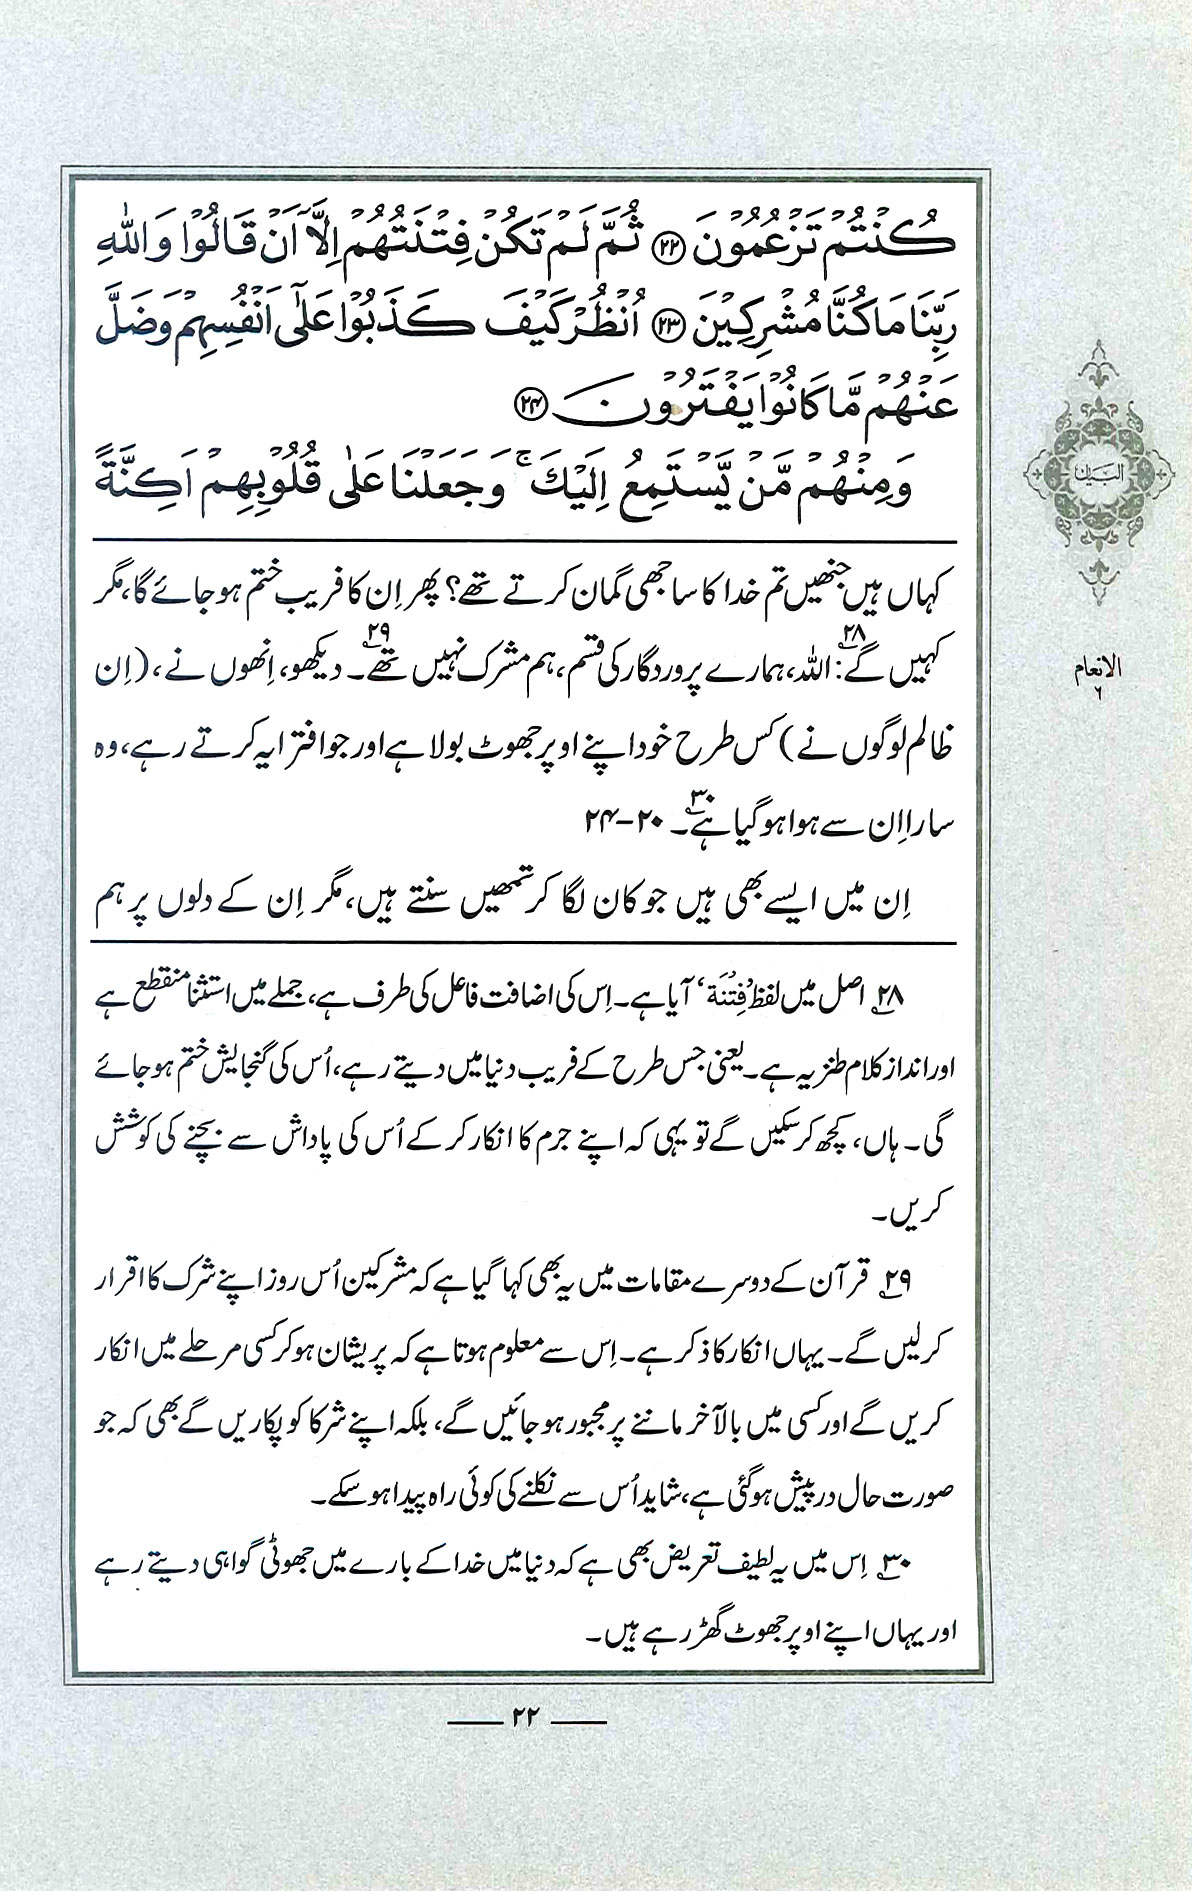 كُنْتُمْ تَزْعُمُوْنَ ﴿۲۲﴾ ثُمَّ لَمْ تَكُنْ فِتْنَتُهُمْ اِلَّآ اَنْ قَالُوْا وَاللّٰهِ
رَبِّنَا مَا كُنَّا مُشْرِكِيْنَ ﴿۲۳﴾ اُنْظُرْ كَيْفَ كَذَبُوْا عَلٰٓى اَنْفُسِهِمْ وَضَلَّ
عَنْهُمْ مَّا كَانُوْا يَفْتَرُوْنَ ﴿۲۴﴾
وَمِنْهُمْ مَّنْ يَّسْتَمِعُ اِلَيْكَ ۚ وَجَعَلْنَا عَلٰى قُلُوْبِهِمْ اَكِنَّةً
کہاں ہیں جنھیں تم خدا کا ساجھی گمان کرتے تھے؟ پھر اِن کا فریب ختم ہو جائے گا، مگر
کہیں گے۲۸: اللہ، ہمارے پروردگار کی قسم، ہم مشرک نہیں تھے۲۹۔ دیکھو، اِنھوں نے، (اِن
ظالم لوگوں نے) کس طرح خود اپنے اوپر جھوٹ بولا ہے اور جو افترا یہ کرتے رہے، وہ
سارا اِن سے ہوا ہو گیا ہے۳۰۔ ۲۰-۲۴
اِن میں ایسے بھی ہیں جو کان لگا کر تمھیں سنتے ہیں، مگر اِن کے دلوں پر ہم
۲۸ اصل میں لفظ ’فِتْنَة‘ آیا ہے۔ اِس کی اضافت فاعل کی طرف ہے، جملے میں استثنا منقطع ہے
اور انداز کلام طنزیہ ہے۔ یعنی جس طرح کے فریب دنیا میں دیتے رہے، اُس کی گنجایش ختم ہو جائے
گی۔ ہاں، کچھ کر سکیں گے تو یہی کہ اپنے جرم کا انکار کر کے اُس کی پاداش سے بچنے کی کوشش
کریں۔
۲۹ قرآن کے دوسرے مقامات میں یہ بھی کہا گیا ہے کہ مشرکین اُس روز اپنے شرک کا اقرار
کر لیں گے۔ یہاں انکار کا ذکر ہے۔ اِس سے معلوم ہوتا ہے کہ پریشان ہو کر کسی مرحلے میں انکار
کریں گے اور کسی میں بالآخر ماننے پر مجبور ہو جائیں گے، بلکہ اپنے شرکا کو پکاریں گے بھی کہ جو
صورت حال درپیش ہو گئی ہے، شاید اُس سے نکلنے کی کوئی راہ پیدا ہو سکے۔
۳۰ اِس میں یہ لطیف تعریض بھی ہے کہ دنیا میں خدا کے بارے میں جھوٹی گواہی دیتے رہے
اور یہاں اپنے اوپر جھوٹ گھڑ رہے ہیں۔
۲۲
البیان
الانعام
۶